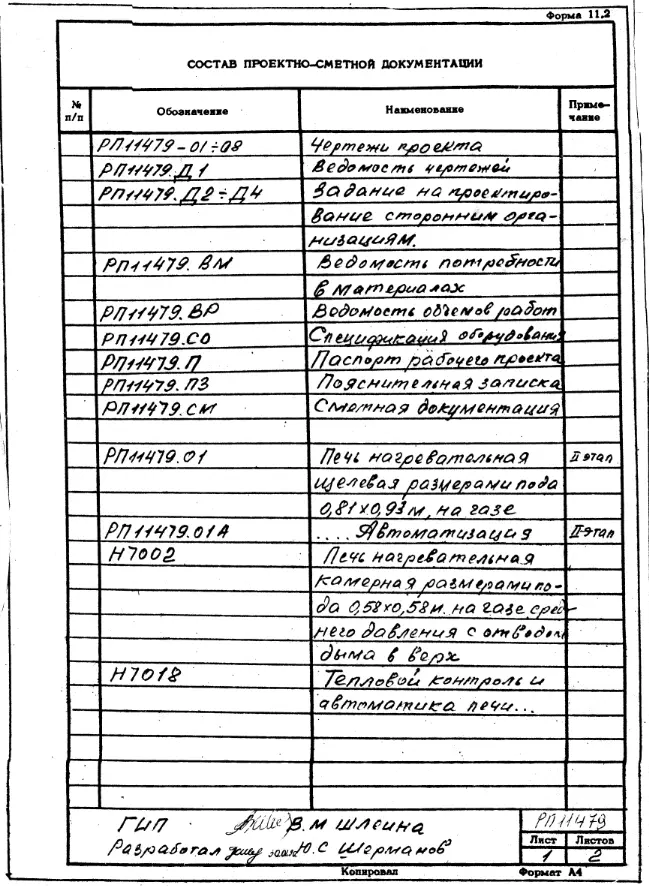 Форма 11.2
СОСТАВ ПРОЕКТНО-СМЕТНОЙ ДОКУМЕНТАЦИИ
№ п/п Обозначение Наименование Приме-
чание
РП11479-01÷08 Чертежи проекта
РП11479.Д1 Ведомость чертежей
РП11479.Д2÷Д4 Задание на проектиро-
вание сторонним орга-
низациям.
РП11479.ВМ Ведомость потребности
в материалах
РП11479.ВР Ведомость объемов работ
РП11479.СО Спецификация оборудования
РП11479.П Паспорт рабочего проекта
РП11479.ПЗ Пояснительная записка
РП11479.СМ Сметная документация
РП11479.01 Печь нагревательная II этап
щелевая размерами пода
0,81х0,93м, на газе
РП11479.01А ....Автоматизация II этап
Н7002 Печь нагревательная
камерная размерами по-
да 0,58х0,58м. на газе сред-
него давления с отводом
дыма в верх
Н7018 Тепловой контроль и
автоматика печи...
ГИП В.М Шлеина РП11479
Разработал Ю.С Шерманов Лист Листов
1 2
Копировал Формат А4